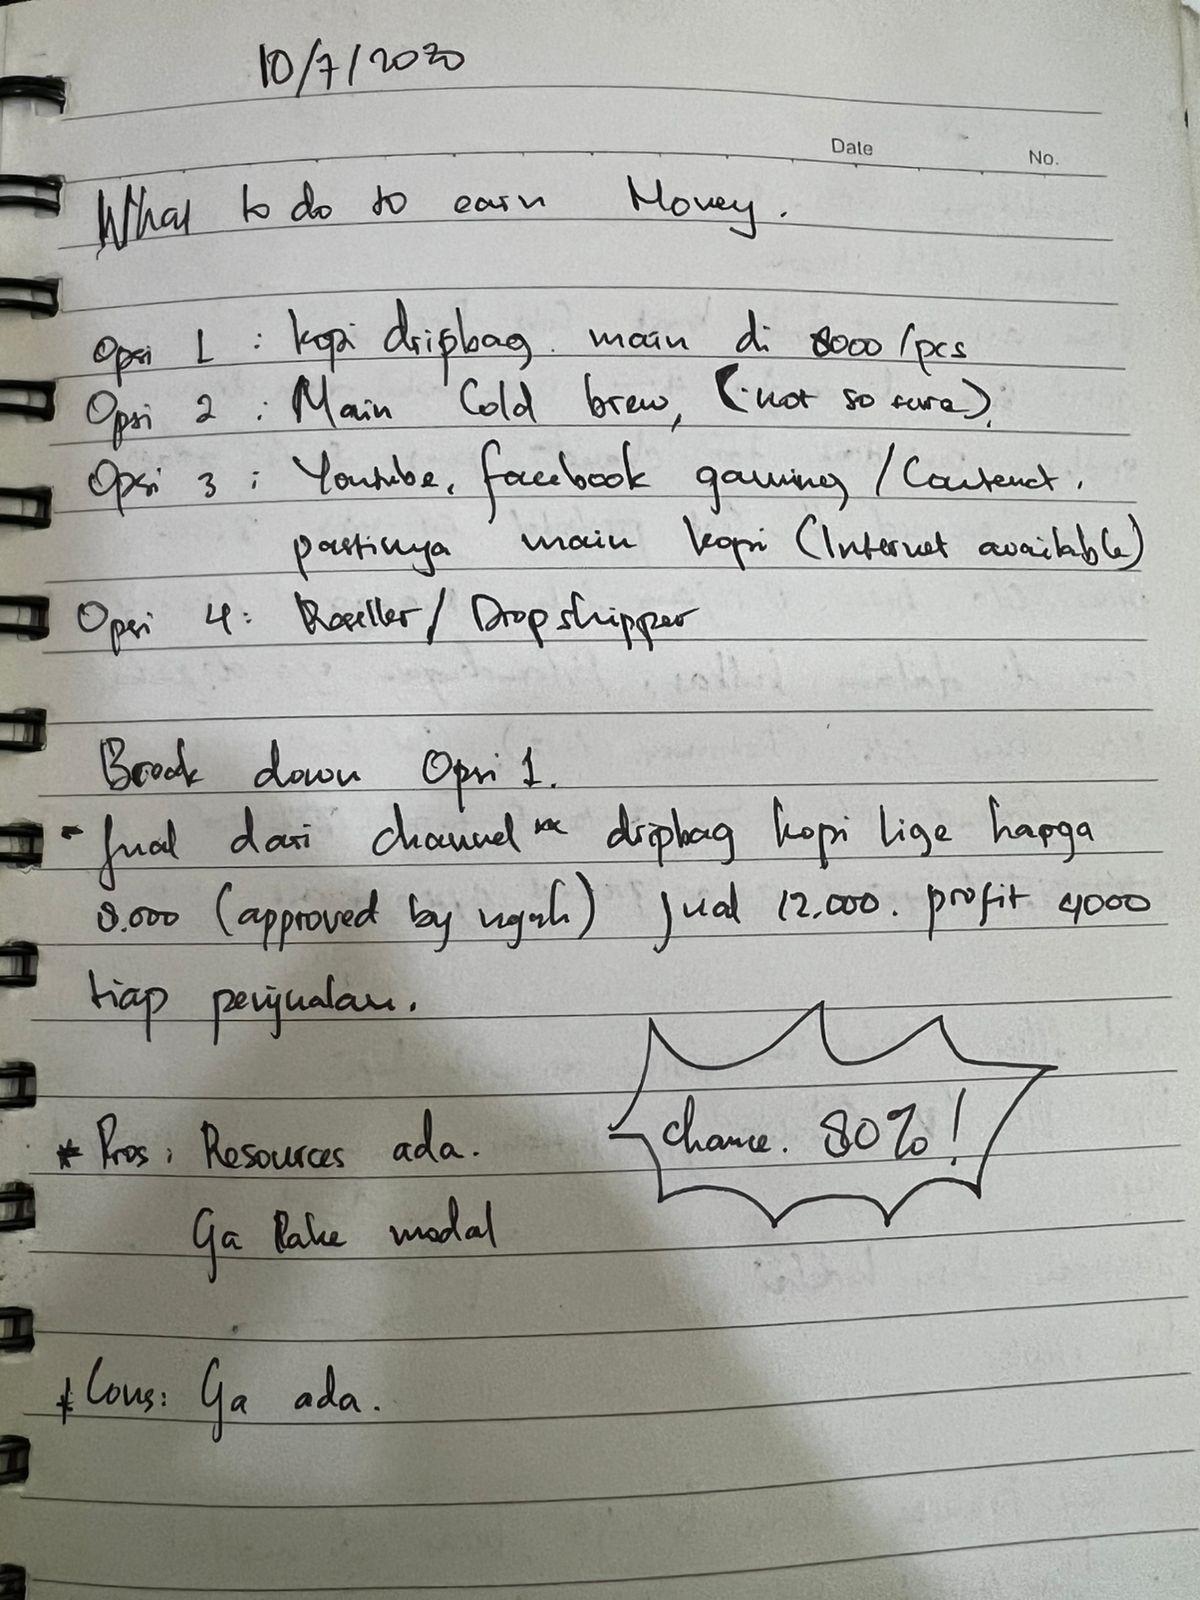 10/7/2020
Date No.
What to do to earn Money.
Opsi 1 : kopi dripbag. main di 8000/pcs
Opsi 2 : Main Cold brew, (not so sure).
Opsi 3 : Youtube, facebook gaming / Content.
pastinya main kopi (Internet available)
Opsi 4: Reseller/ Dropshipper
Break down Opsi 1.
- Jual dari channel dripbag kopi lige harga
8.000 (approved by ngah) jual 12.000. profit 4000
tiap penjualan.
chance. 80%!
* Pros: Resources ada.
Ga Pake modal
* Cons: Ga ada.